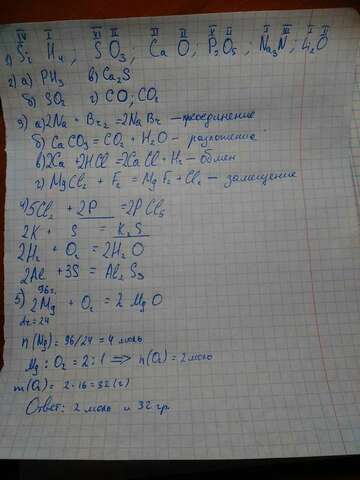 IV I VI II II II V II I III I II
1) Si H4 ; SO3 ; Ca O ; P2O5 ; Na3N ; Li2O
2) а) PH3 в) Ca2S
б) SO2 г) CO, CO2
3) а) 2Na + Br2 = 2Na Br — присоединение
б) Ca CO3 = CO2 + H2O — разложение
в) 2Ca + 2HCl = 2CaCl + H2 — обмен
г) MgCl2 + F2 = Mg F2 + Cl2 — замещение
4) 5Cl2 + 2P = 2P Cl5
2K + S = K2S
2H2 + O2 = 2H2O
2Al + 3S = Al2 S3
96г.
5) 2Mg + O2 = 2 MgO
Ar=24
n(Mg) = 96/24 = 4 моль
Mg : O2 = 2 : 1 ⟹ n(O2) = 2моль
m(O2) = 2 · 16 = 32 (г)
Ответ: 2 моль и 32 гр.